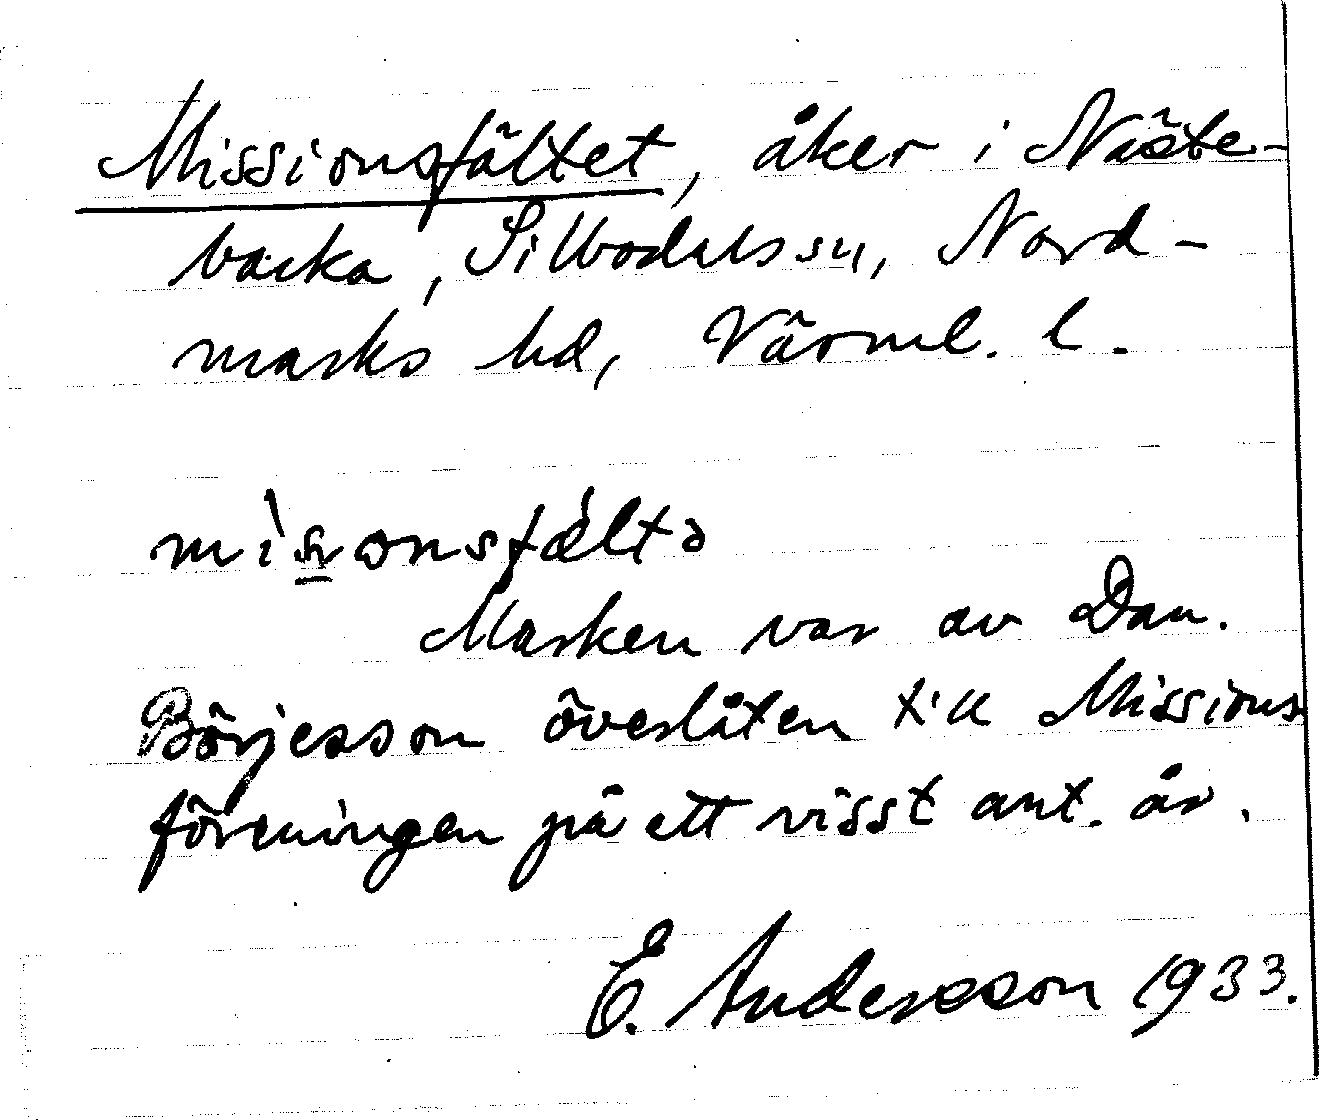 Missionsfältet, åker i Näste-
backa, Silbodals sn, Nord-
marks hd, Värml. l.
mìsonsfält́ə
Marken var av Dan.
Börjesson överlåten till Missions
föreningen på ett visst ant. år.
E. Andersson 1933.